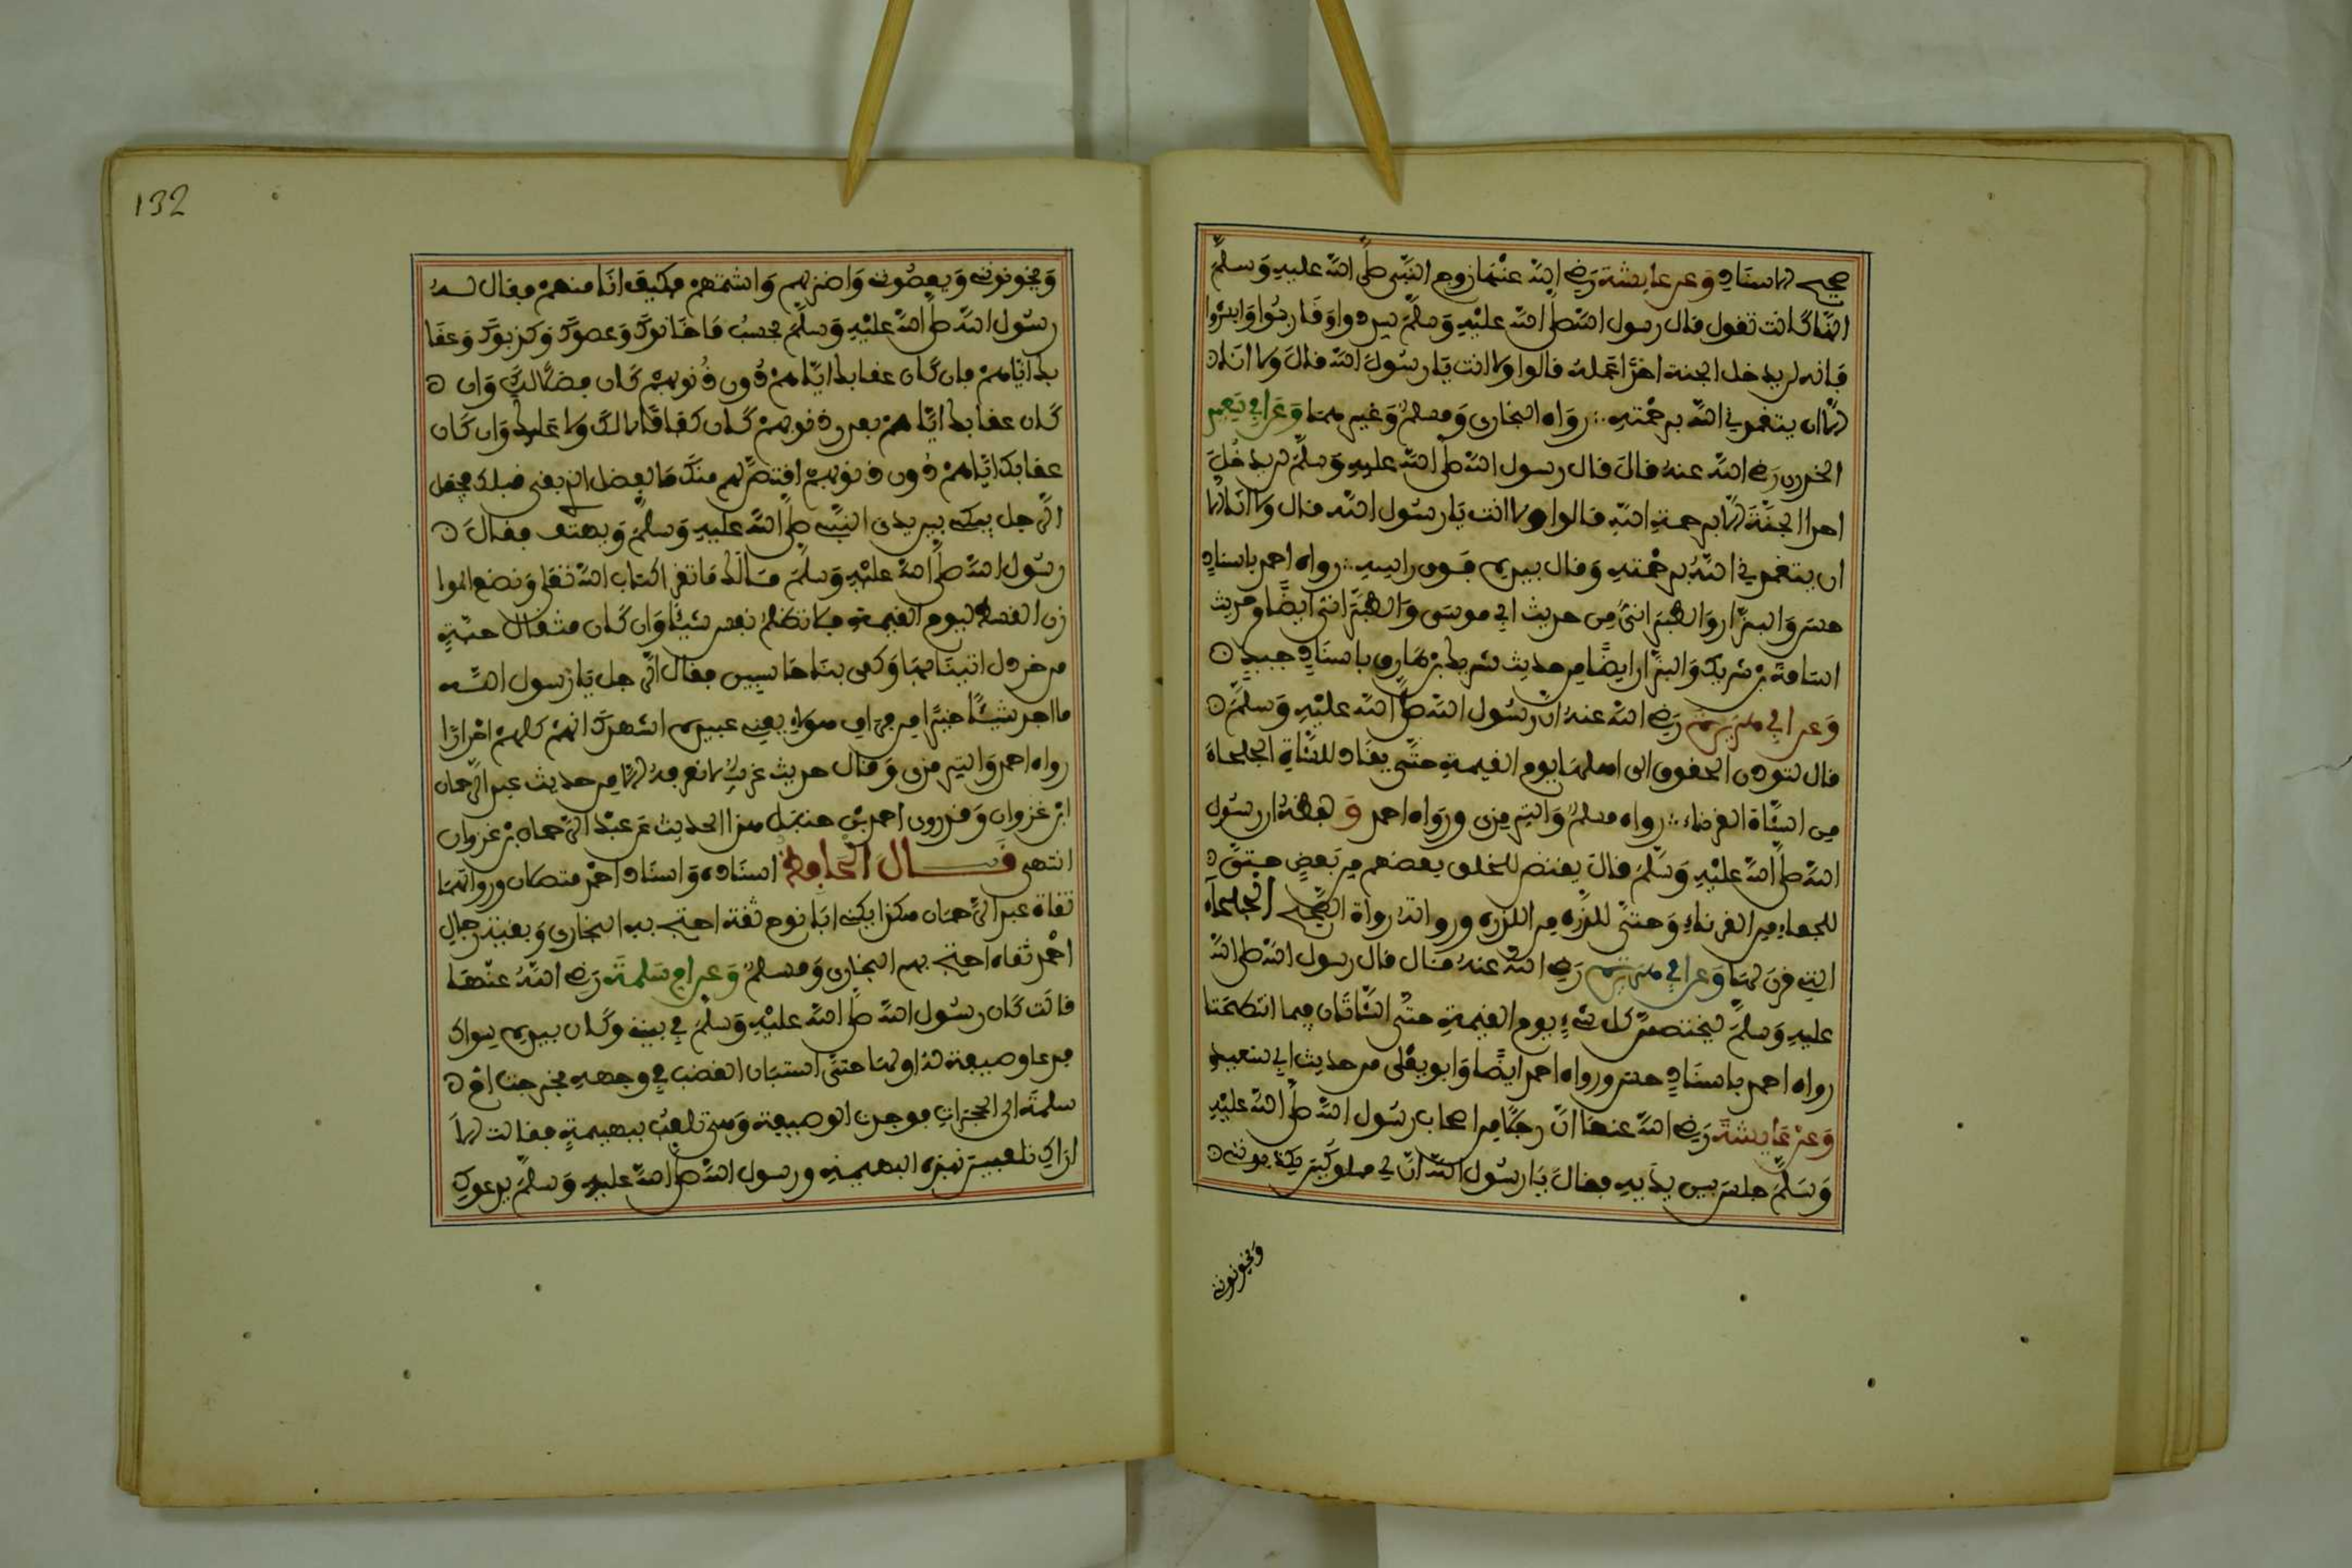 صحيح الاسناد وعن عايشة رضي الله عنها زوج النبي صلى الله عليه وسلم
انها كانت تقول قال رسول الله صلى الله عليه وسلم سددوا وقاربوا وابشروا
فانه لن يدخل الجنة احدا عمله قالوا ولا انت يا رسول الله قال ولا انا
الا ان يتغمدني الله برحمته رواه البخاري ومسلم وغيرهما وعن ابي سعيد
الخدري رضي الله عنه قال قال رسول الله صلى الله عليه وسلم لن يدخل
احدا الجنة الا برحمة الله قالوا ولا انت يا رسول الله قال ولا انا الا
ان يتغمدني الله برحمته وقال بيده فوق راسه رواه احمد باسناد
حسن والبزار والطبراني من حديث ابي موسى والطبراني ايضا وحديث
اسامة بن شريك والبزار ايضا من حديث شريك بن طارق باسناد جيد
وعن ابي هريرة رضي الله عنه ان رسول الله صلى الله عليه وسلم
قال لتودن الحقوق الى اهلها يوم القيمة حتى يقاد للشاة الجلحاء
من الشاة القرناء رواه مسلم والترمذي ورواه احمد ولفظه ان رسول
الله صلى الله عليه وسلم قال يقتص للخلق بعضهم من بعض حتى
للجماء من القرناء وحتى للذرة من الذرة ورواته رواة الصحيح الجلحاء
التي لا قرن لها وعن ابي هريرة رضي الله عنه قال قال رسول الله صلى الله
عليه وسلم ليختصمن كل شيء يوم القيمة حتى الشاتان فيما انتطحتا
رواه احمد باسناد حسن ورواه احمد ايضا وابو يعلى من حديث ابي سعيد
وعن عايشة رضي الله عنها ان رجلا من اصحاب رسول الله صلى الله عليه
وسلم جلس بين يديه فقال يا رسول الله ان لي مملوكين يكذبونني
ويخونونني
132
ويخونونني ويعصونني واضربهم واشتمهم فكيف انا منهم فقال له
رسول الله صلى الله عليه وسلم يحسب ما خانوك وعصوك وكذبوك وعقا
بك اياهم فان كان عقابك اياهم دون ذنوبهم كان فضلا لك وان
كان عقابك اياهم بقدر ذنوبهم كان كفافا لا لك ولا عليك وان كان
عقابك اياهم دون ذنوبهم اقتص لهم منك ما الفضل الذي بقي قبلك فجعل
الرجل يبكي بين يدي النبي صلى الله عليه وسلم ويهتف فقال
رسول الله صلى الله عليه وسلم مالك ما تقرا كتاب الله تعلى ونضع الموا
زين القسط ليوم القيمة فلا تظلم نفس شيئا وان كان مثقال حبة
من خردل اتينا بها وكفى بنا حاسبين فقال الرجل يا رسول الله
ما اجد شيئا خيرا من فراق هولاء يعني عبيده اشهدك انهم كلهم احرارا
رواه احمد والترمذي وقال حديث غريب لا نعرفه الا من حديث عبد الرحمان
ابن غزوان وقد روى احمد بن حنبل هذا الحديث عن عبد الرحمان بن غزوان
انتهى قال الحافظ اسناده واسناد احمد متصلان ورواتهما
ثقاة عبد الرحمان هكذا يكنى ابا نوح ثقة احتج به البخاري وبقية رجال
احمد ثقاة احتج بهم البخاري ومسلم وعن ام سلمة رضي الله عنها
قالت كان رسول الله صلى الله عليه وسلم في بيته وكان بيده سواك
فدعا وصيفة له او لها حتى استبان الغضب في وجهه فخرجت ام
سلمة الى الحجرات فوجدت الوصيفة وهي تلعب ببهيمة فقالت الا
اراك تلعبين بهذه البهيمة ورسول الله صلى الله عليه وسلم يدعوك